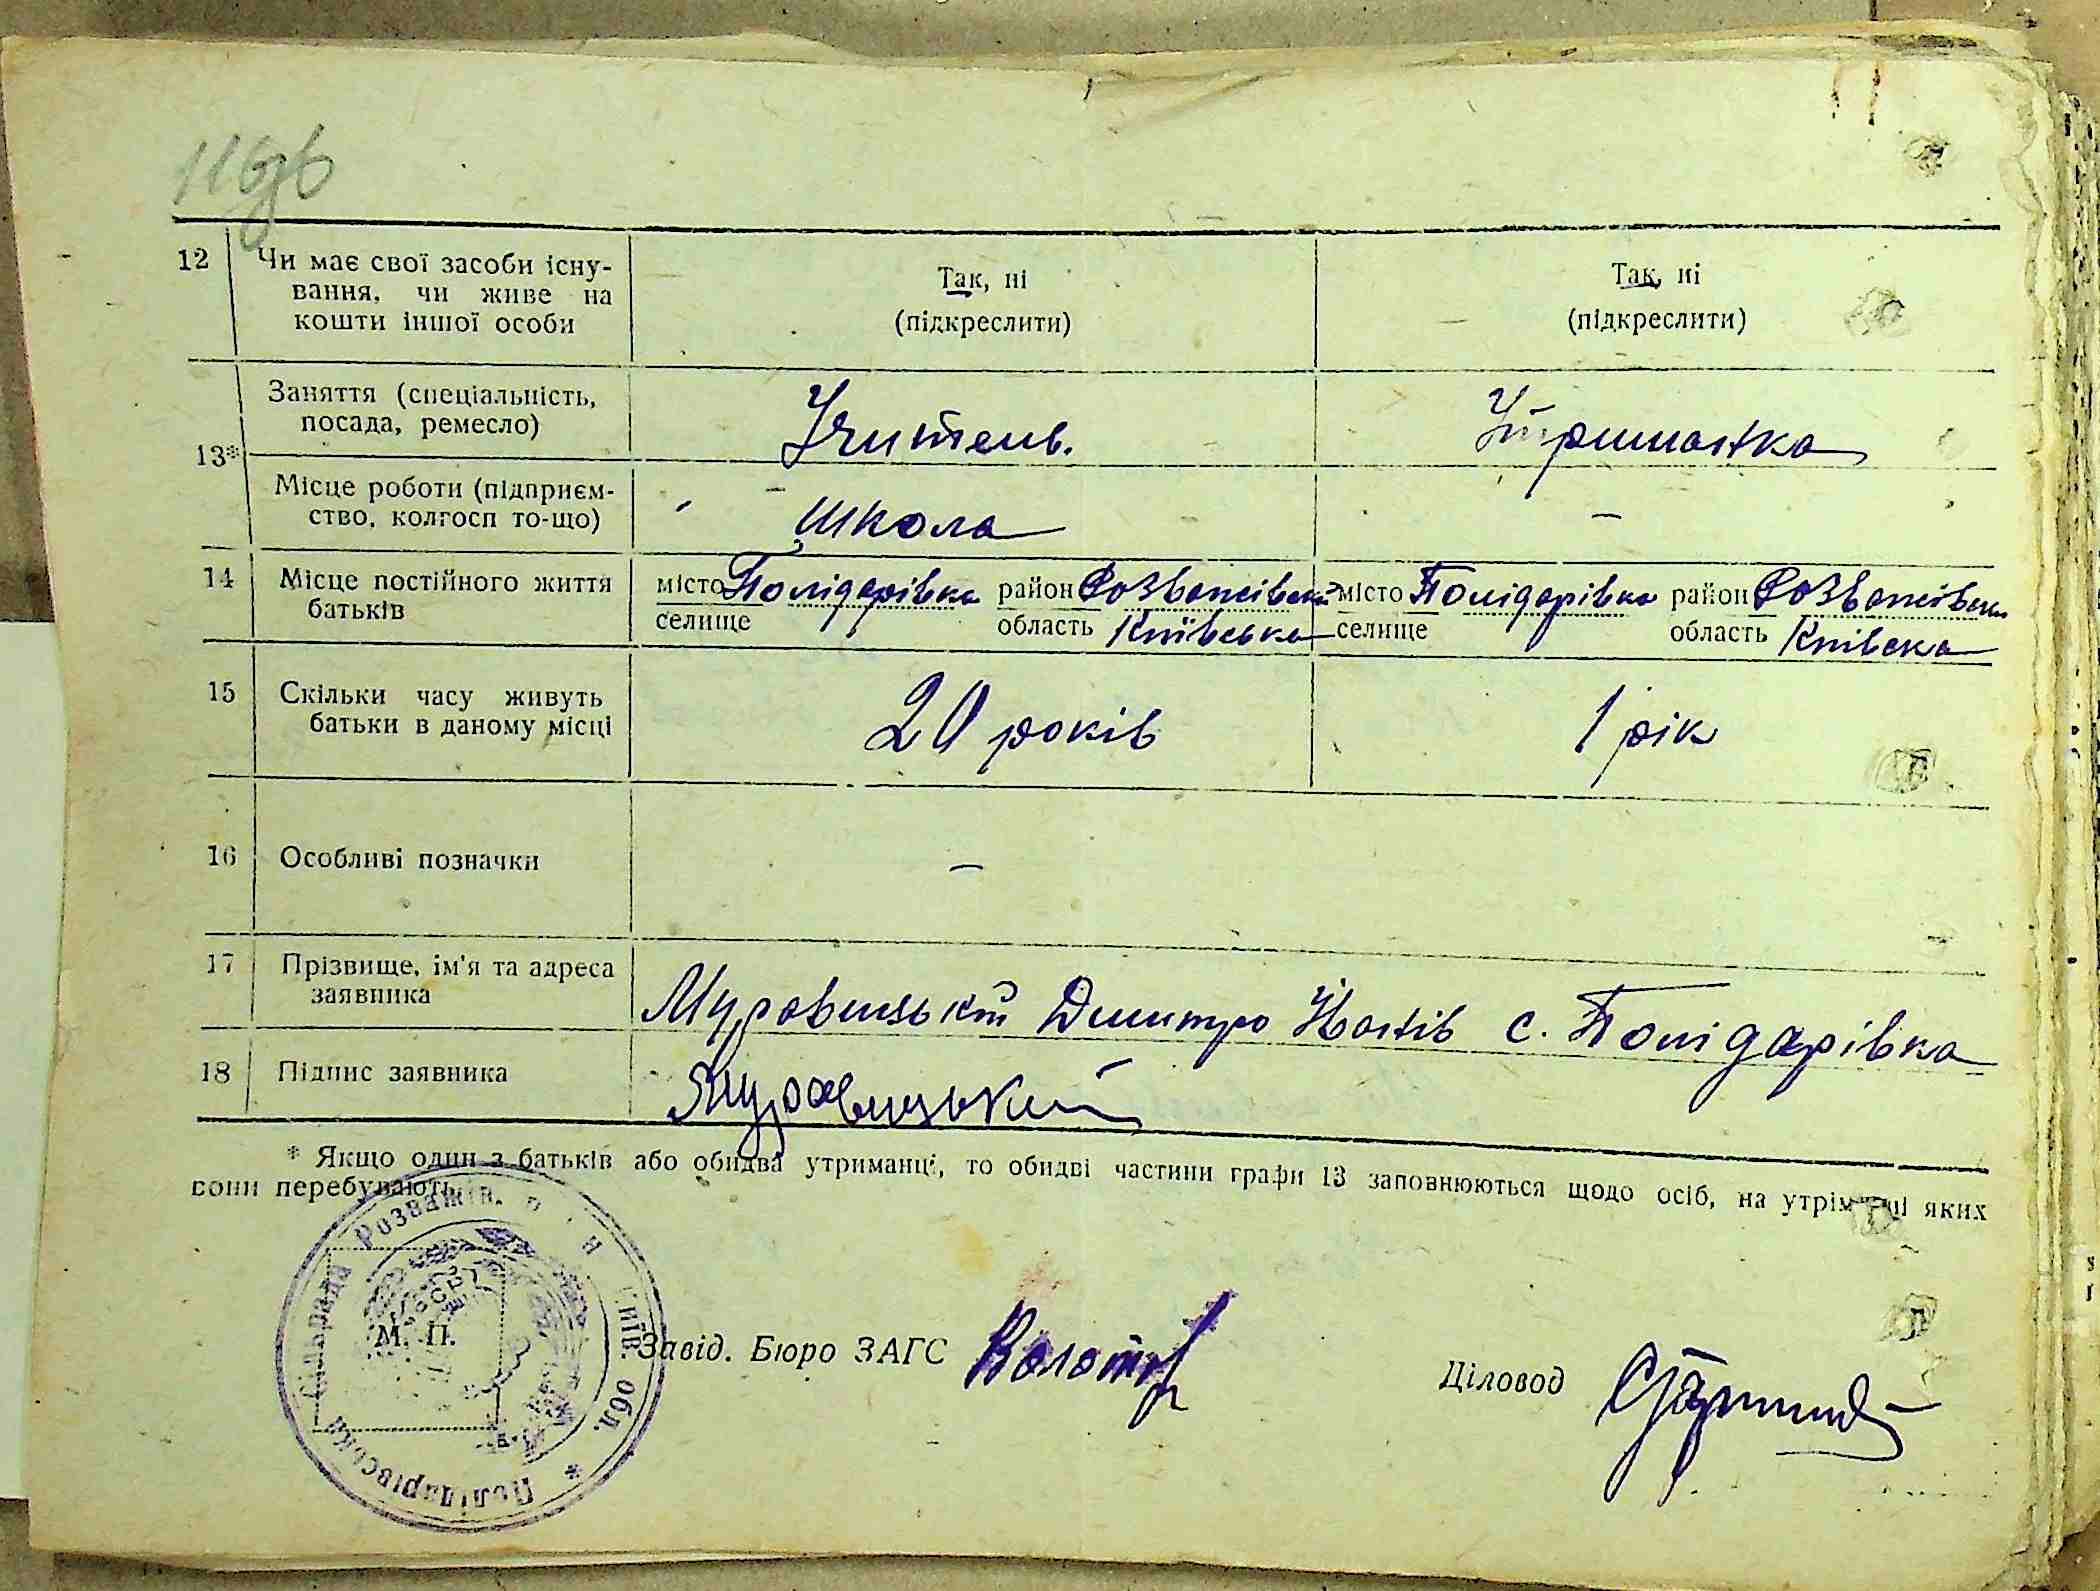 116зв
12 Чи має свої засоби існу-
вання, чи живе на
кошти іншої особи
Так, ні
(підкреслити)
Так, ні
(підкреслити)
13*
Заняття (спеціальність,
посада, ремесло)
Учитель.
Утриманка
Місце роботи (підприєм-
ство, колгосп то-що)
школа
–
14 Місце постійного життя
батьків
місто Полідарівка район Розважівськ
селище область Київська
місто Полідарівка район Розважівськ
селище область Київска
15 Скільки часу живуть
батьки в даному місці
20 років
1 рік
16 Особливі позначки
–
17 Прізвище, ім'я та адреса
заявника
Муравицький Дмитро Йосипів с. Полідарівка
18 Підпис заявника
Муравицький
* Якщо один з батьків або обидва утриманці, то обидві частини графи 13 заповнюються щодо осіб, на утріманні яких
вони перебувають.
Полідарівська сільрада Розважів. р-н Київ. обл. *
УСРР
М. П.
Завід. Бюро ЗАГС
Діловод